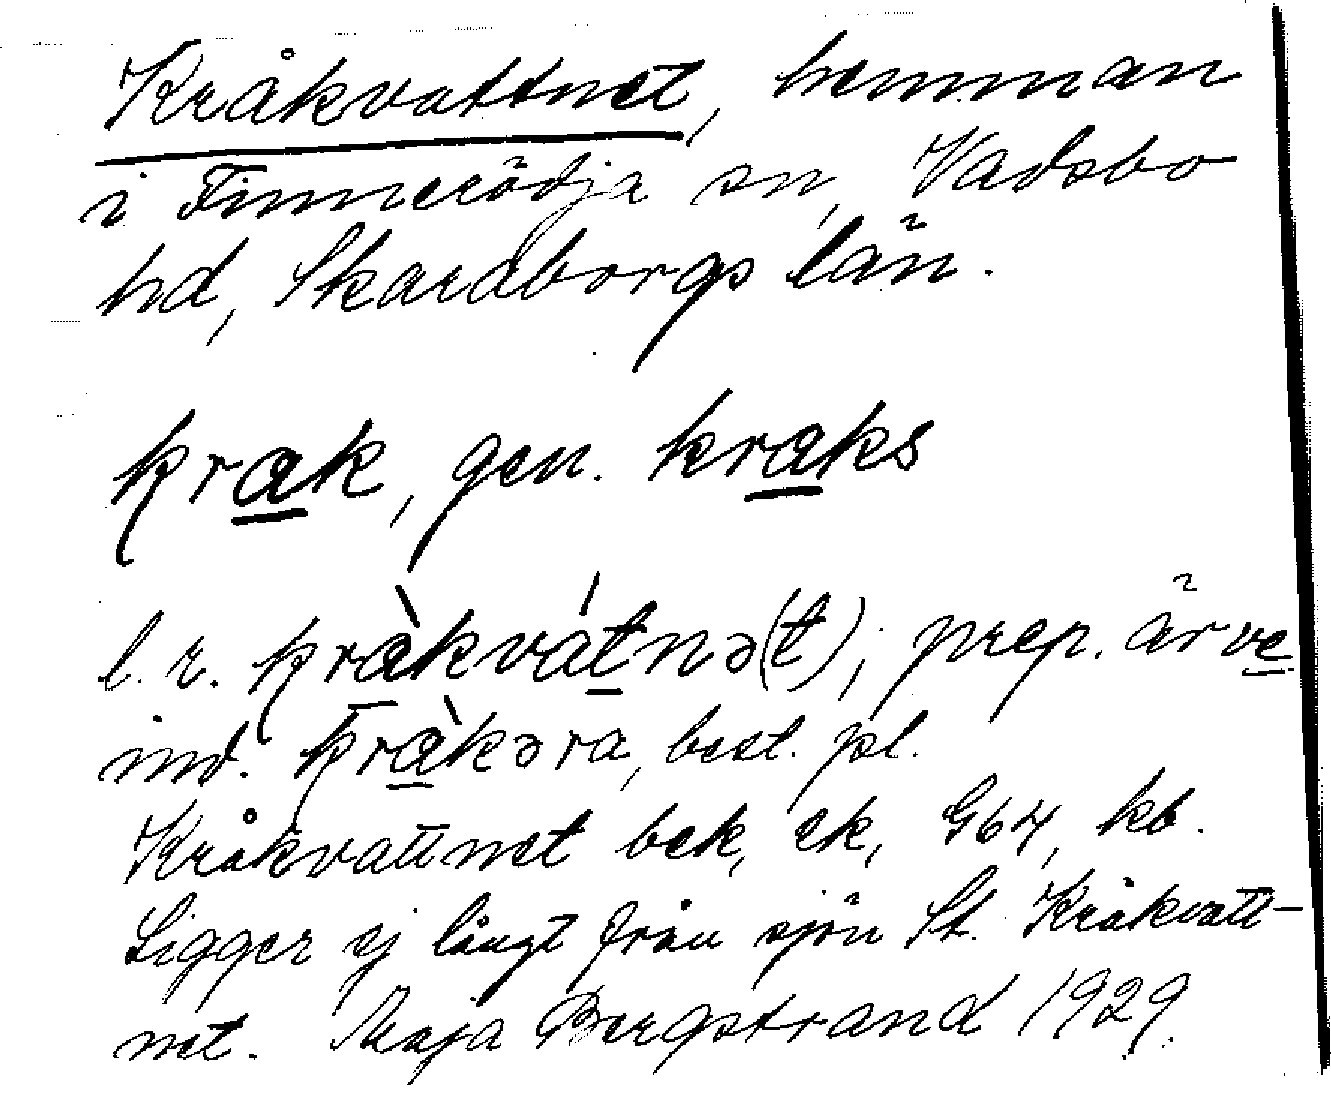 Kråkvattnet, hemman
i Finnerödja sn, Vadsbo
hd, Skaraborgs län.
krak, gen. kraks
l. r. kràkvátnə(t); prep. är ve
ind. kràkəra, best. pl.
Kråkvattnet bek, ek, G64, kb.
Ligger ej långt från sjön St. Kråkvatt-
net. Maja Bergstrand 1929.